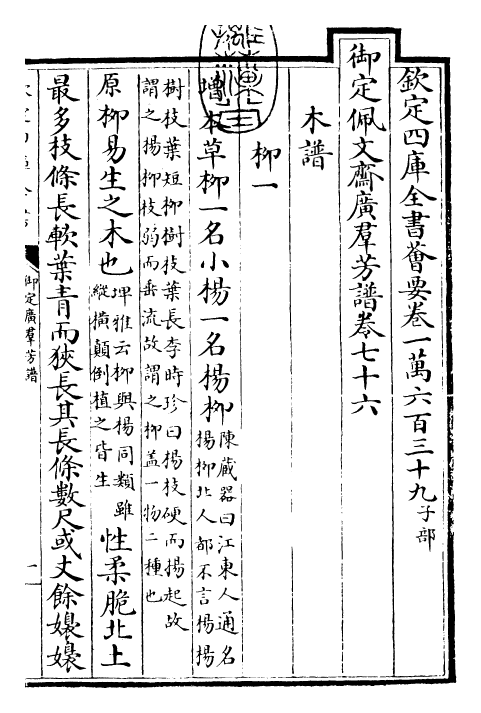 欽定四庫全書薈要卷一萬六百三十九子部
御定佩文齋廣羣芳譜卷七十六
木譜
柳一
增本草柳一名小楊一名楊柳陳藏器曰江東人通名
楊柳北人都不言楊楊
樹枝葉短柳樹枝葉長李時珍曰楊枝硬而揚起故
謂之楊柳枝弱而垂流故謂之柳盖一物二種也
原柳易生之木也埤雅云柳與楊同類雖
縱橫顛倒植之皆生性柔脆北土
最多枝條長軟葉青而狹長其長條數尺或丈餘嬝嬝
御定廣羣芳譜
一